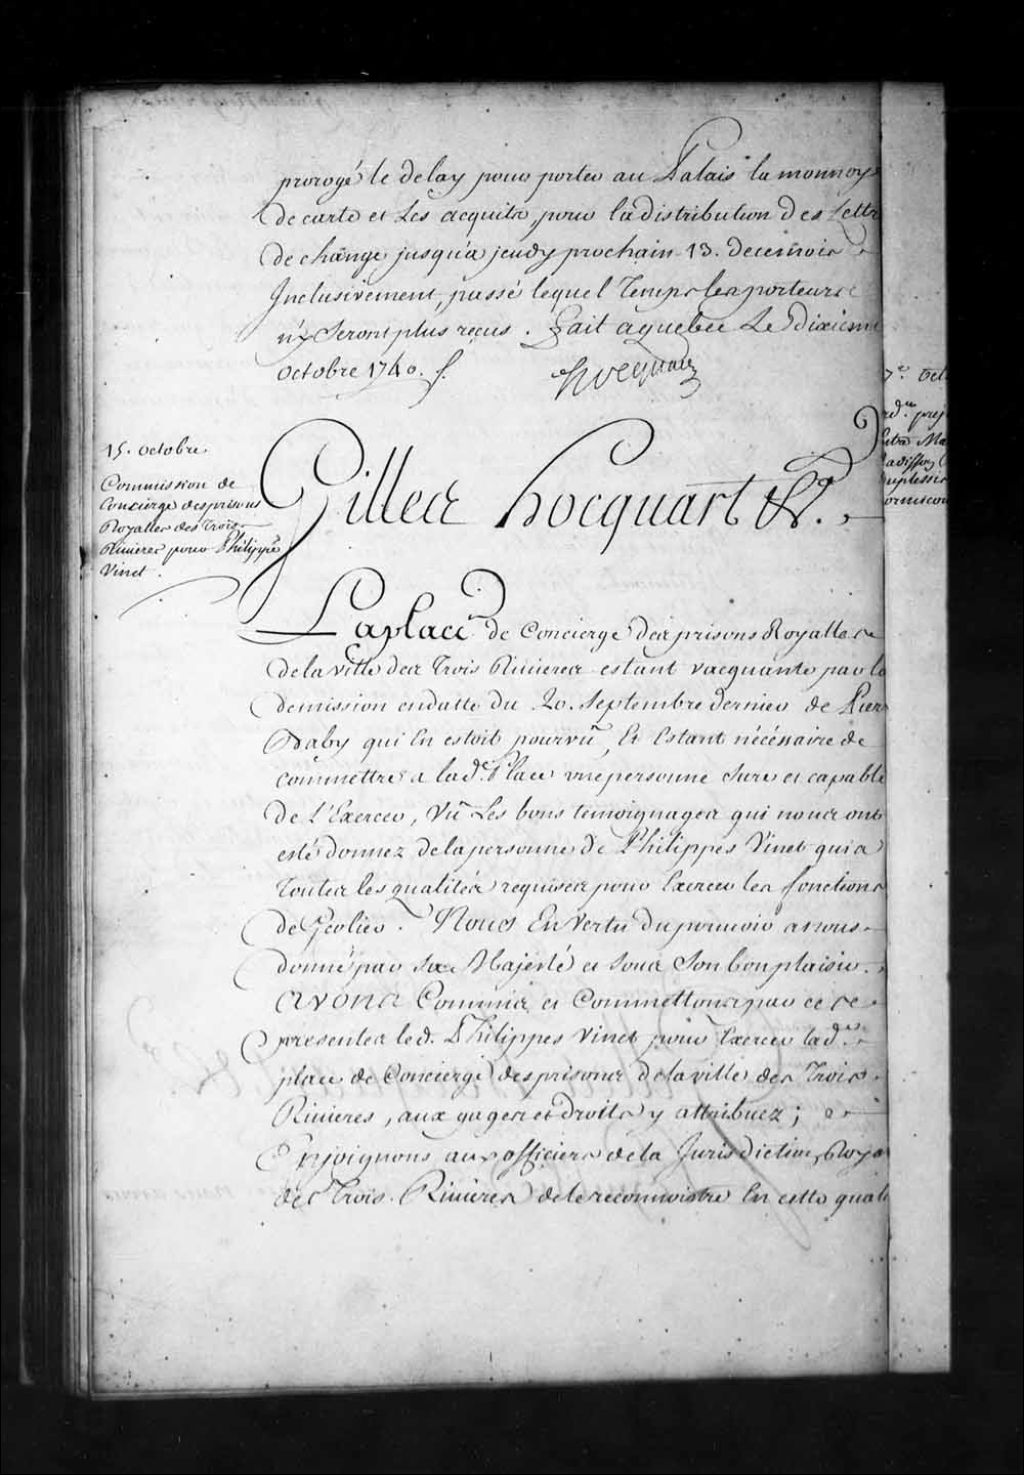 prorogé le delay pour porter au Palais la monnoye
de carte et Les acquits, pour la distribution des Lettr
de change jusqu'a jeudy prochain 13. decembre
Inclusivement, passé lequel Temps les porteurs
n'y Seront plus reçus. fait a quebec Le dixieme
octobre 1740. /.
Hocquart
15. octobre.
Commission de
Concierge des prisons
Royalles des Trois
Rivieres pour Philippe
Vinet.
Gilles hocquart &ca.
La place de Concierge des prisons Royalles
de la ville des Trois Rivieres estant vacquante par la
demission en datte du 20. septembre dernier de Pier
Baby qui En estoit pourvû, Et Estant nécéssaire de
commettre a lad.e Place une personne sure et capable
de l'Exercer, Vû Les bons temoignages qui nous ont
esté donnez de la personne de Philippes Vinet qui a
Toutes les qualités requises pour Exercer les fonctions
de Geolier. Nous En Vertu du pouvoir a nous
donné par sa Majesté et sous Son bon plaisir
avons Commis et Commettons par ces
presentes led. Philippes Vinet pour Exercer lad.e
place de Concierge des prisons de la ville des Trois
Rivieres, aux gages et droits y attribuez;
Enjoignons aux officiers de la Jurisdiction Roya
des Trois Rivieres de le reconnoistre En cette quali